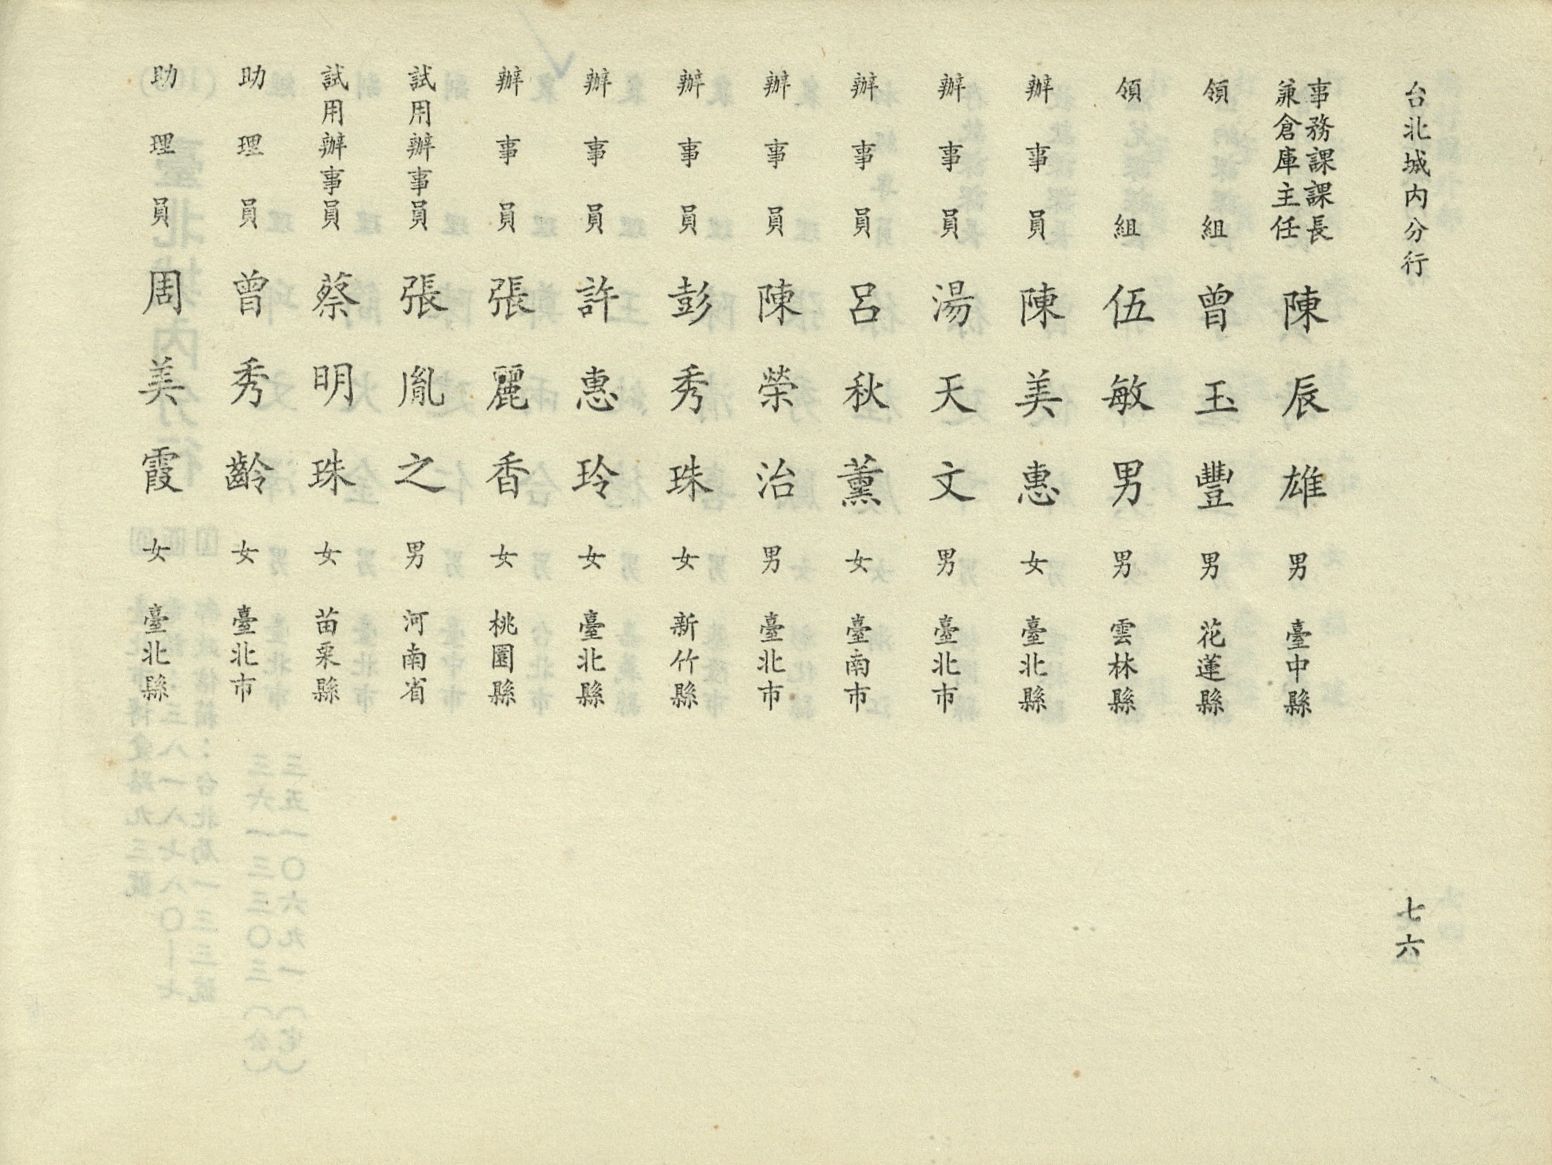 台北城内分行
七六
事務課課長
兼倉庫主任
陳辰雄 男 臺中縣
領組 曾玉豐 男 花蓮縣
領組 伍敏男 男 雲林縣
辦事員 陳美惠 女 臺北縣
辦事員 湯天文 男 臺北市
辦事員 呂秋薰 女 臺南市
辦事員 陳榮治 男 臺北市
辦事員 彭秀珠 女 新竹縣
辦事員 許惠玲 女 臺北縣
辦事員 張麗香 女 桃園縣
試用辦事員 張胤之 男 河南省
試用辦事員 蔡明珠 女 苗栗縣
助理員 曾秀齡 女 臺北市
助理員 周美霞 女 臺北縣